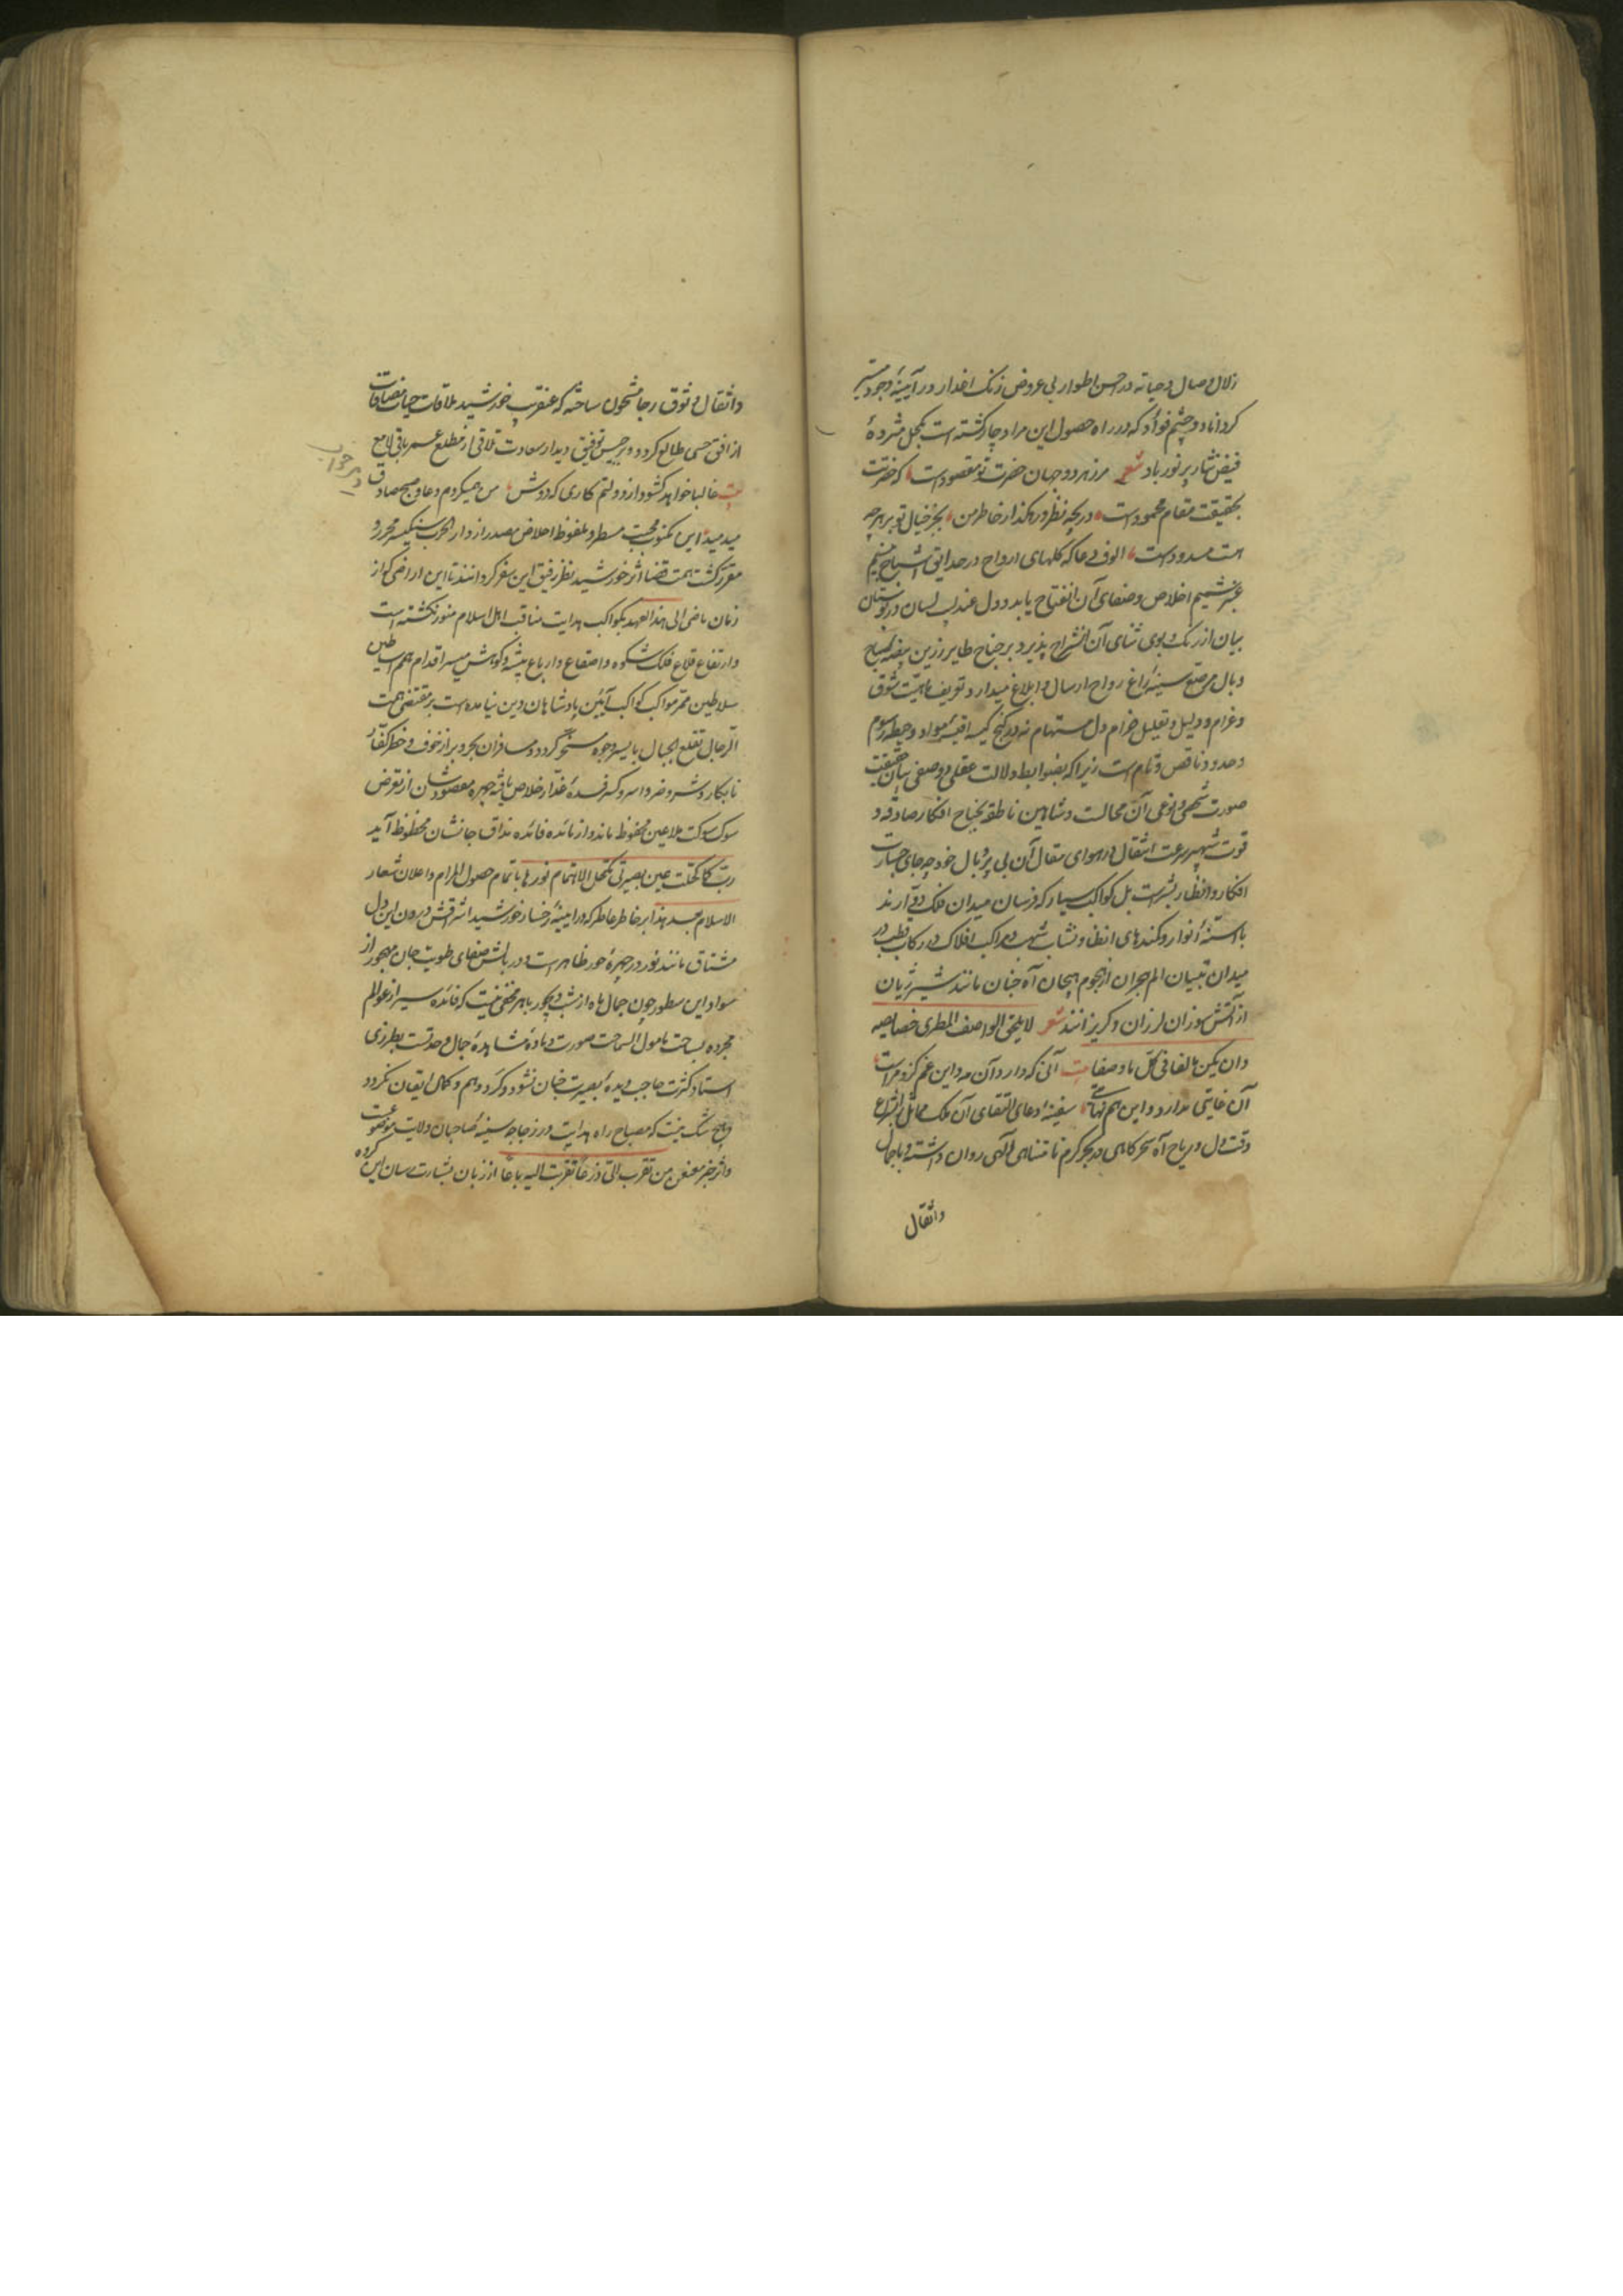 زلال وصال و حیاته در حسن اطوار بی عروض زنک اغدار در آیینهٔ وجود
کرداناد و چشم فوأد که در راه حصول این مراد چار کشته است بکحل مشرودهٔ
فیض نثار پر نور باد شعر مرز هر دو جهان حضرت تو مقصودست که حضرتت
بحقیقت مقام محمودست دریچه نظر و رهکذار خاطر من بجز خیال تو بر هر چه
هست مسدودست الوف دعا که کلهای ارواح در حدایق اشباح نسیم
عنبر شمیم اخلاص و صفای آن انفتاح یابد و دل عندلیب لسان در بوستان
بیان از رنک و بوی ثنای آن انشراح پذیرد بر جناح طایر زرین بیضه صباح
و بال مرصع سینهٔ زاغ رواح ارسال و ابلاغ میدارد و تعریف ماهیّت شوق
و غرام و دلیل و تعلیل ضرام دل مستهام نه در کنج کیسه اقیسه مواد و حیطه رسوم
و حدود ناقص و تام است زیرا که بضوابط دلالت عقلی و وصفی بیان حقیقت
صورت شخصی و نوعی آن محالست و شاهین ناطقه بجناح افکار صادقه و
قوت شهپر سرعت انتقال در هوای مقال آن بی پر و بال خود چه جای جسارت
افکار و انظار بشرست بل کواکب سیار که فرسان میدان فلک دوّارند
با اسنّهٔ انوار و کمندهای انظار و نشاب شهب و مراکب افلاک در رکاب قطب در
میدان تبیان الم هجران از هجوم هیجان آه جنان مانند شیر ژیان
از آتش سوزان لرزان و کریزانند شعر لا یلحق الواصف المطری خصایصه
و ان یکن بالغا فی کل ما وصفا بیت آنی که دارد آن مه و این غم کزو مراست
آن غایتی ندارد و این هم نهایتی سفینهٔ ادعای التقای آن ملک مماثل با شراع
رقت دل و ریاح آه سحرکاهی در بحر کرم نامتناهی الهی روان داشته و باحمال
و اثقال
و اثقال وثوق رجا مشحون ساخته که عنقریب خورشید ملاقات حیات مضافات
از افق حسی طالع کردد و برجیس توفیق دیدار سعادت تلاقی از مطلع عمر باقی لامع
بیت غالبا خواهد کشود از دولتم کاری که دوش من همیکردم دعا و صبح صادق
میدمید این مکتوب محبت مسطر و ملفوظ اخلاص مصدر از دار الحرب سنکیسر محرر و
مقرر کشت همت قضا اثر خورشید نظر رفیق این سفر کردانند تا این اراضی که از
زمان ماضی الی هذا العهد بکواکب هدایت مناقب اهل اسلام منور نکشته است
و ارتفاع قلاع فلک شکوه و امتناع و ارباع بیشه و کوهش میسر اقدام همم اساطین
سلاطین ممر مواکب کواکب آیین پادشاهان دین نیامده است بر مقتضی همت
الرجال تقلع الجبال بایسر وجوه مسخر کردد و مسافران بحر و بر از خوف و خطر کفّار
نابکار و شر و ضر و اسر و کسر فسدهٔ غدار خلاص یافته چهره مقصودشان از تعرض
شوک شوکت ملاعین محفوظ ماند و از مائده فائده مذاق جانشان محظوظ آید
رب کما کحلت عین بصیرتی بکحل الاهتمام نورها باتمام حصول المرام و اعلان شعار
الاسلام بعد هذا بر خاطر عاطر که در آیینهٔ رخسار خورشید اشراقش درون این دل
مشتاق مانند نور در چهرهٔ حور ظاهرست و در بالش صفای طویت جان مهجور از
سواد این سطور چون جمال ماه از شب دیجور باهر مخفی نیست که فائده سیر از عوالم
مجرده بساحت ناموا الساحت صورت و ماده مشاهدهٔ جمال وحدتست بطرزی
استار کثرت حاجب دیدهٔ بصیرت جنان نشود و کرد وهم و کمان ایقان نکردد
و هیچ شک نیست که مصباح راه هدایت در زجاجه سینهٔ صاحبان ولایت موضوعست
و اثر خبر معنعن من تقرب الیّ ذرعا تقربت الیه باعا از زبان بشارت رسان این کروه